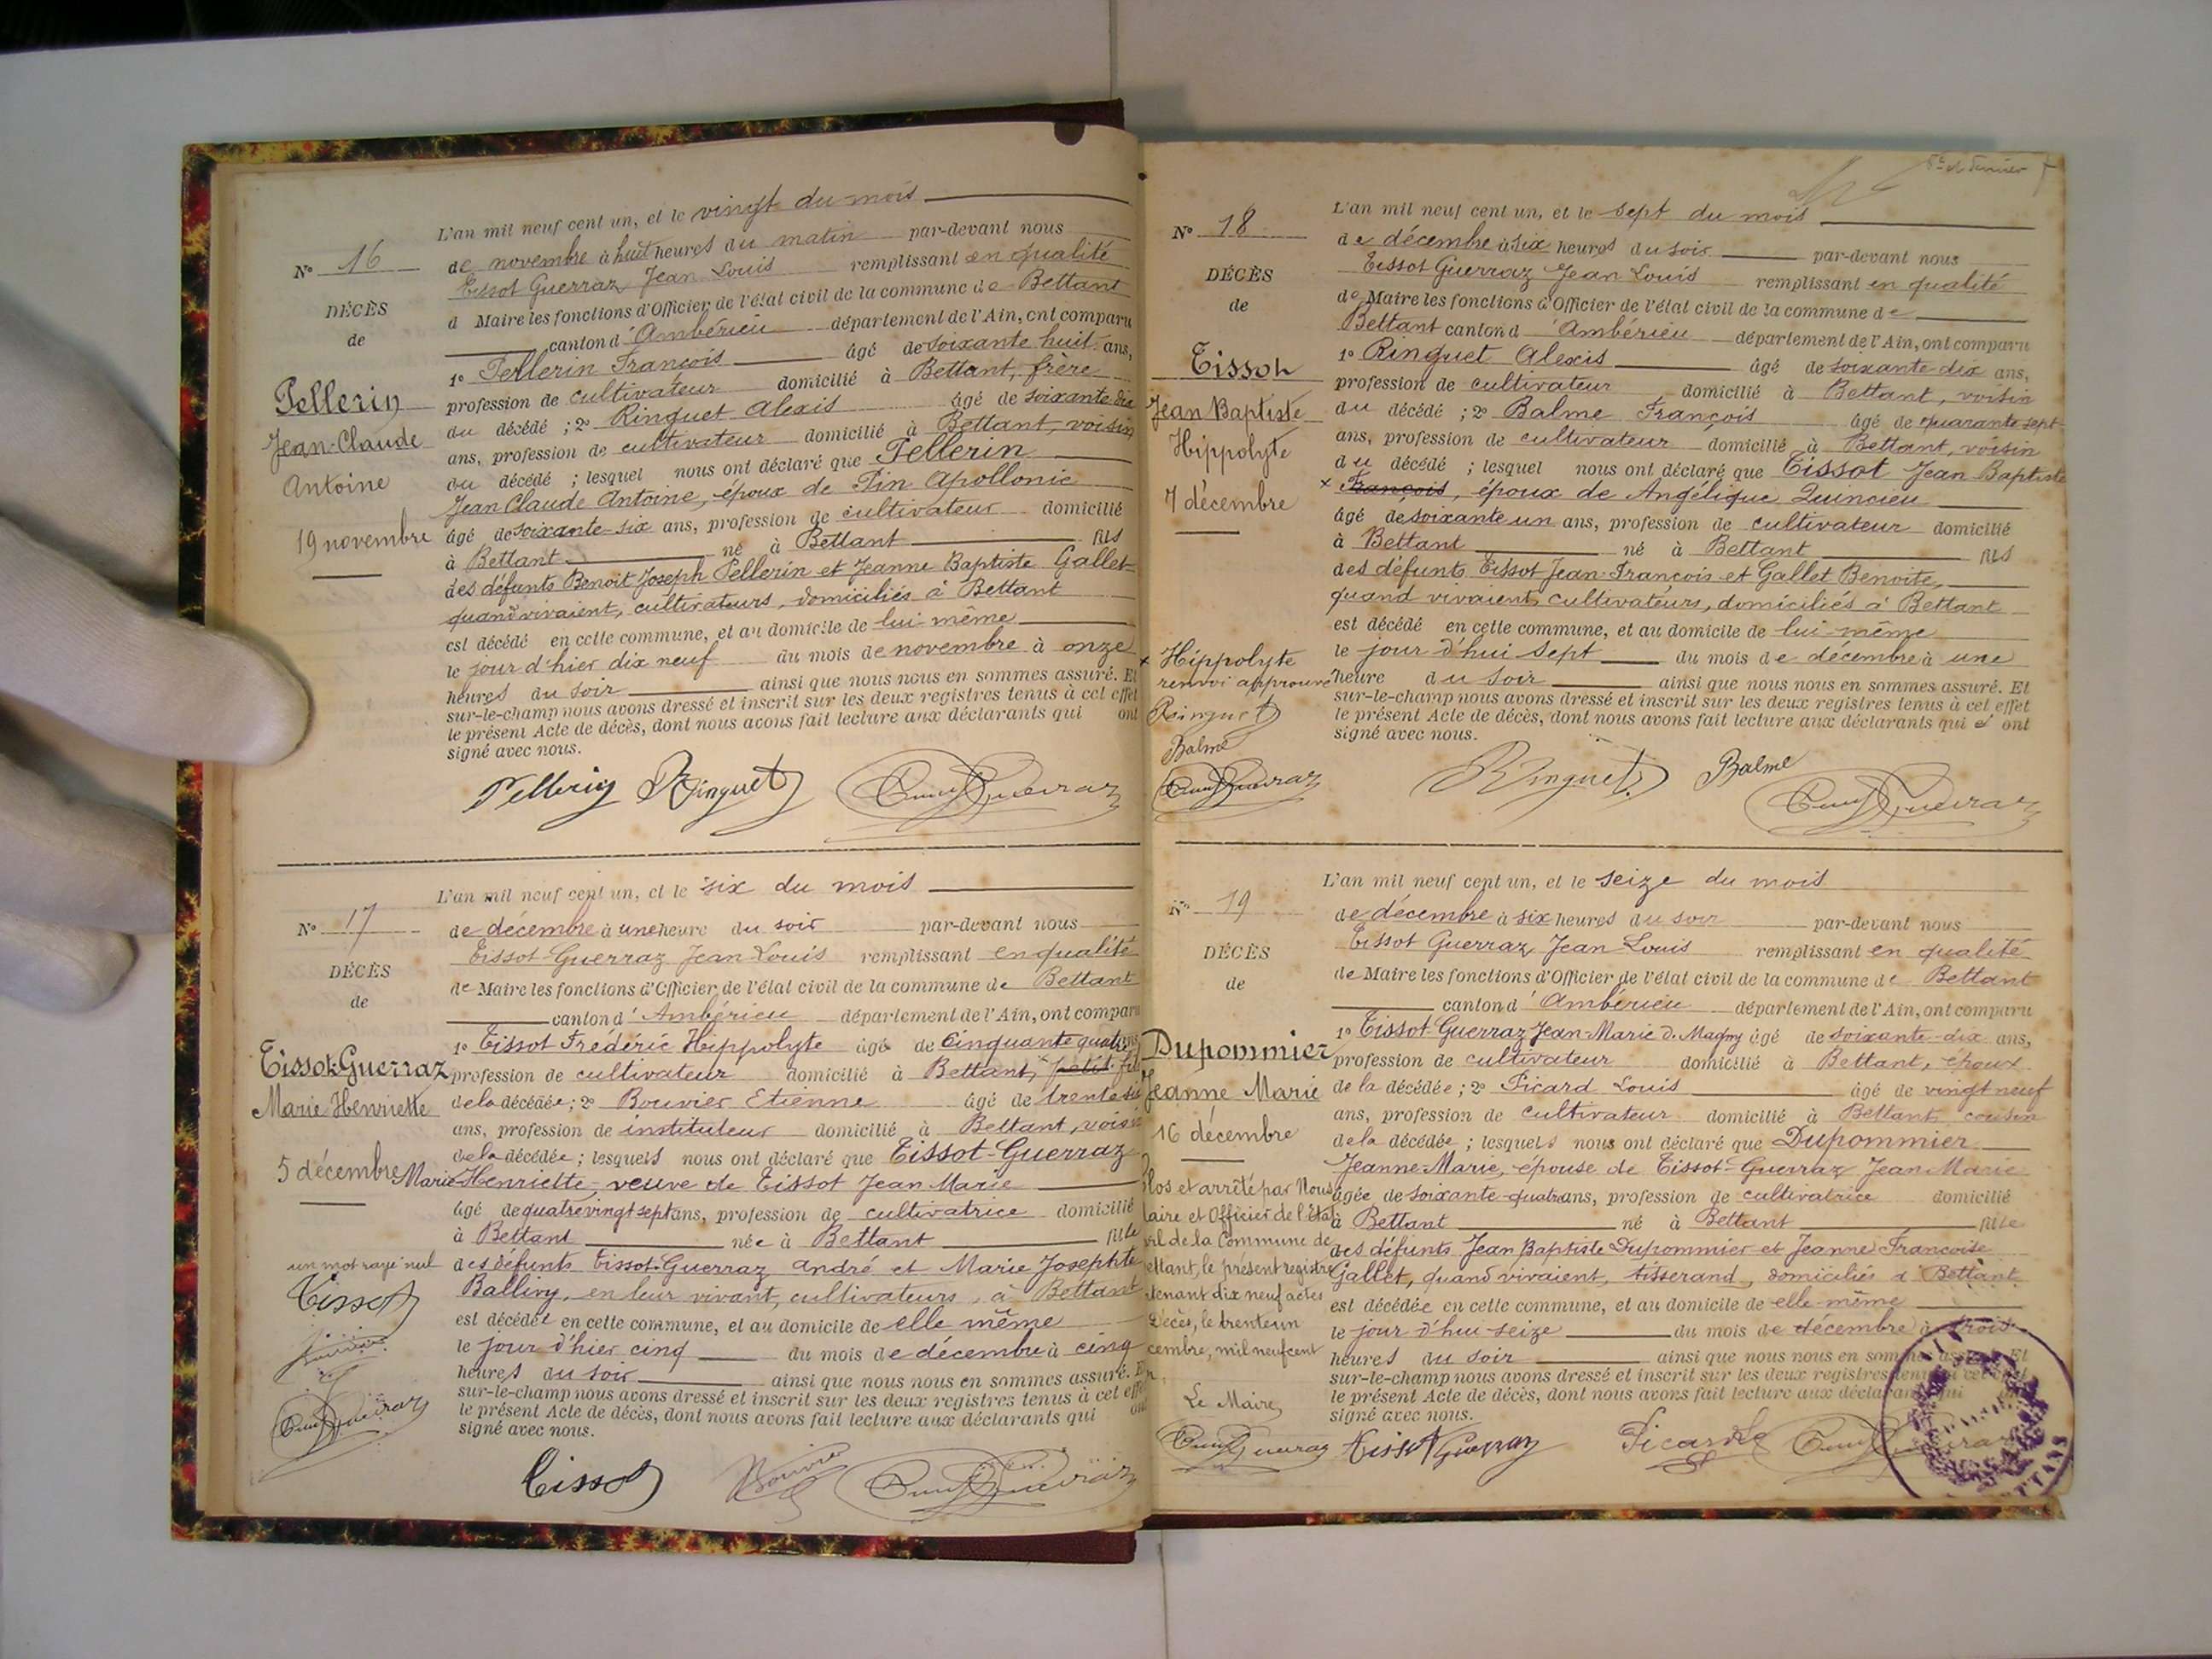 L'an mil neuf cent un, et le vingt du mois
N° 16
de novembre à huit heures du matin par-devant nous
Tissot Guerraz Jean Louis remplissant en qualité
DÉCÈS
de
d Maire les fonctions d'Officier de l'état civil de la commune de Bettant
canton d'Ambérieu département de l'Ain, ont comparu
1° Pellerin François âgé de soixante huit ans,
Pellerin
Jean-Claude
Antoine
19 novembre
profession de cultivateur domicilié à Bettant, frère
du décédé ; 2° Ringuet Alexis âgé de soixante dix
ans, profession de cultivateur domicilié à Bettant, voisin
du décédé ; lesquel nous ont déclaré que Pellerin
Jean Claude Antoine, époux de Pin Apollonie
âgé de soixante-six ans, profession de cultivateur domicilié
à Bettant né à Bettant fils
des défunts Benoit Joseph Pellerin et Jeanne Baptiste Gallet
quand vivaient, cultivateurs, domiciliés à Bettant
est décédé en cette commune, et au domicile de lui-même
le jour d'hier dix neuf du mois de novembre à onze
heures du soir ainsi que nous nous en sommes assuré. Et
sur-le-champ nous avons dressé et inscrit sur les deux registres tenus à cet effet
le présent Acte de décès, dont nous avons fait lecture aux déclarants qui ont
signé avec nous.
Pellerin Ringuet Guerraz
L'an mil neuf cent un, et le six du mois
N° 17
de décembre à une heure du soir par-devant nous
Tissot-Guerraz Jean-Louis remplissant en qualité
DÉCÈS
de
de Maire les fonctions d'Officier de l'état civil de la commune de Bettant
canton d'Ambérieu département de l'Ain, ont comparu
1° Tissot Frédéric Hippolyte âgé de Cinquante quatre ans,
Tissot-Guerraz
Marie Henriette
5 décembre
profession de cultivateur domicilié à Bettant, petit fils
de la décédée ; 2° Bouvier Etienne âgé de trente six
ans, profession de instituteur domicilié à Bettant, voisin
de la décédée ; lesquels nous ont déclaré que Tissot-Guerraz
Marie Henriette, veuve de Tissot Jean Marie
âgé de quatre vingt sept ans, profession de cultivatrice domicilié
à Bettant née à Bettant fille
des défunts Tissot-Guerraz André et Marie Josephte
Ballivy, en leur vivant, cultivateurs, à Bettant
est décédée en cette commune, et au domicile de elle même
le jour d'hier cinq du mois de décembre à cinq
heures du soir ainsi que nous nous en sommes assuré. Et
sur-le-champ nous avons dressé et inscrit sur les deux registres tenus à cet effet
le présent Acte de décès, dont nous avons fait lecture aux déclarants qui ont
signé avec nous.
un mot rayé nul
Tissot
Bouvier
Guerraz
Tissot Bouvier Guerraz
L'an mil neuf cent un, et le sept du mois
N° 18
de décembre à six heures du soir par-devant nous
Tissot Guerraz Jean Louis remplissant en qualité
DÉCÈS
de
de Maire les fonctions d'Officier de l'état civil de la commune de
Bettant canton d'Ambérieu département de l'Ain, ont comparu
1° Ringuet Alexis âgé de soixante-dix ans,
Tissot
Jean Baptiste
Hippolyte
7 décembre
profession de cultivateur domicilié à Bettant, voisin
du décédé ; 2° Balme François âgé de quarante sept
ans, profession de cultivateur domicilié à Bettant, voisin
du décédé ; lesquel nous ont déclaré que Tissot Jean Baptiste
x François, époux de Angélique Quincieu
âgé de soixante un ans, profession de cultivateur domicilié
à Bettant né à Bettant fils
des défunts Tissot Jean-François et Gallet Benoite,
quand vivaient, cultivateurs, domiciliés à Bettant
est décédé en cette commune, et au domicile de lui-même
le jour d'hui sept du mois de décembre à une
heure du soir ainsi que nous nous en sommes assuré. Et
sur-le-champ nous avons dressé et inscrit sur les deux registres tenus à cet effet
le présent Acte de décès, dont nous avons fait lecture aux déclarants qui ont
signé avec nous.
x Hippolyte
renvoi approuvé
Ringuet
Balme
Guerraz
Ringuet Balme Guerraz
L'an mil neuf cent un, et le seize du mois
N° 19
de décembre à six heures du soir par-devant nous
Tissot Guerraz Jean-Louis remplissant en qualité
DÉCÈS
de
de Maire les fonctions d'Officier de l'état civil de la commune de Bettant
canton d'Ambérieu département de l'Ain, ont comparu
1° Tissot-Guerraz Jean-Marie d. Magny âgé de soixante-dix ans,
Dupommier
Jeanne Marie
16 décembre
profession de cultivateur domicilié à Bettant, époux
de la décédée ; 2° Picard Louis âgé de vingt neuf
ans, profession de cultivateur domicilié à Bettant, cousin
de la décédée ; lesquels nous ont déclaré que Dupommier
Jeanne-Marie, épouse de Tissot-Guerraz Jean Marie
âgée de soixante-quatre ans, profession de cultivatrice domicilié
à Bettant né à Bettant fille
des défunts Jean Baptiste Dupommier et Jeanne Françoise
Gallet, quand vivaient, tisserand, domiciliés à Bettant
est décédée en cette commune, et au domicile de elle-même
le jour d'hui seize du mois de décembre à trois
heures du soir ainsi que nous nous en sommes assuré. Et
sur-le-champ nous avons dressé et inscrit sur les deux registres tenus à cet effet
le présent Acte de décès, dont nous avons fait lecture aux déclarants qui
signé avec nous.
Clos et arrêté par Nous
Maire et Officier de l'État
civil de la Commune de
Bettant, le présent registre
contenant dix neuf actes
Décès, le trente un
décembre, mil neuf cent
un.
Le Maire,
Guerraz Tissot Guerraz Picard Guerraz